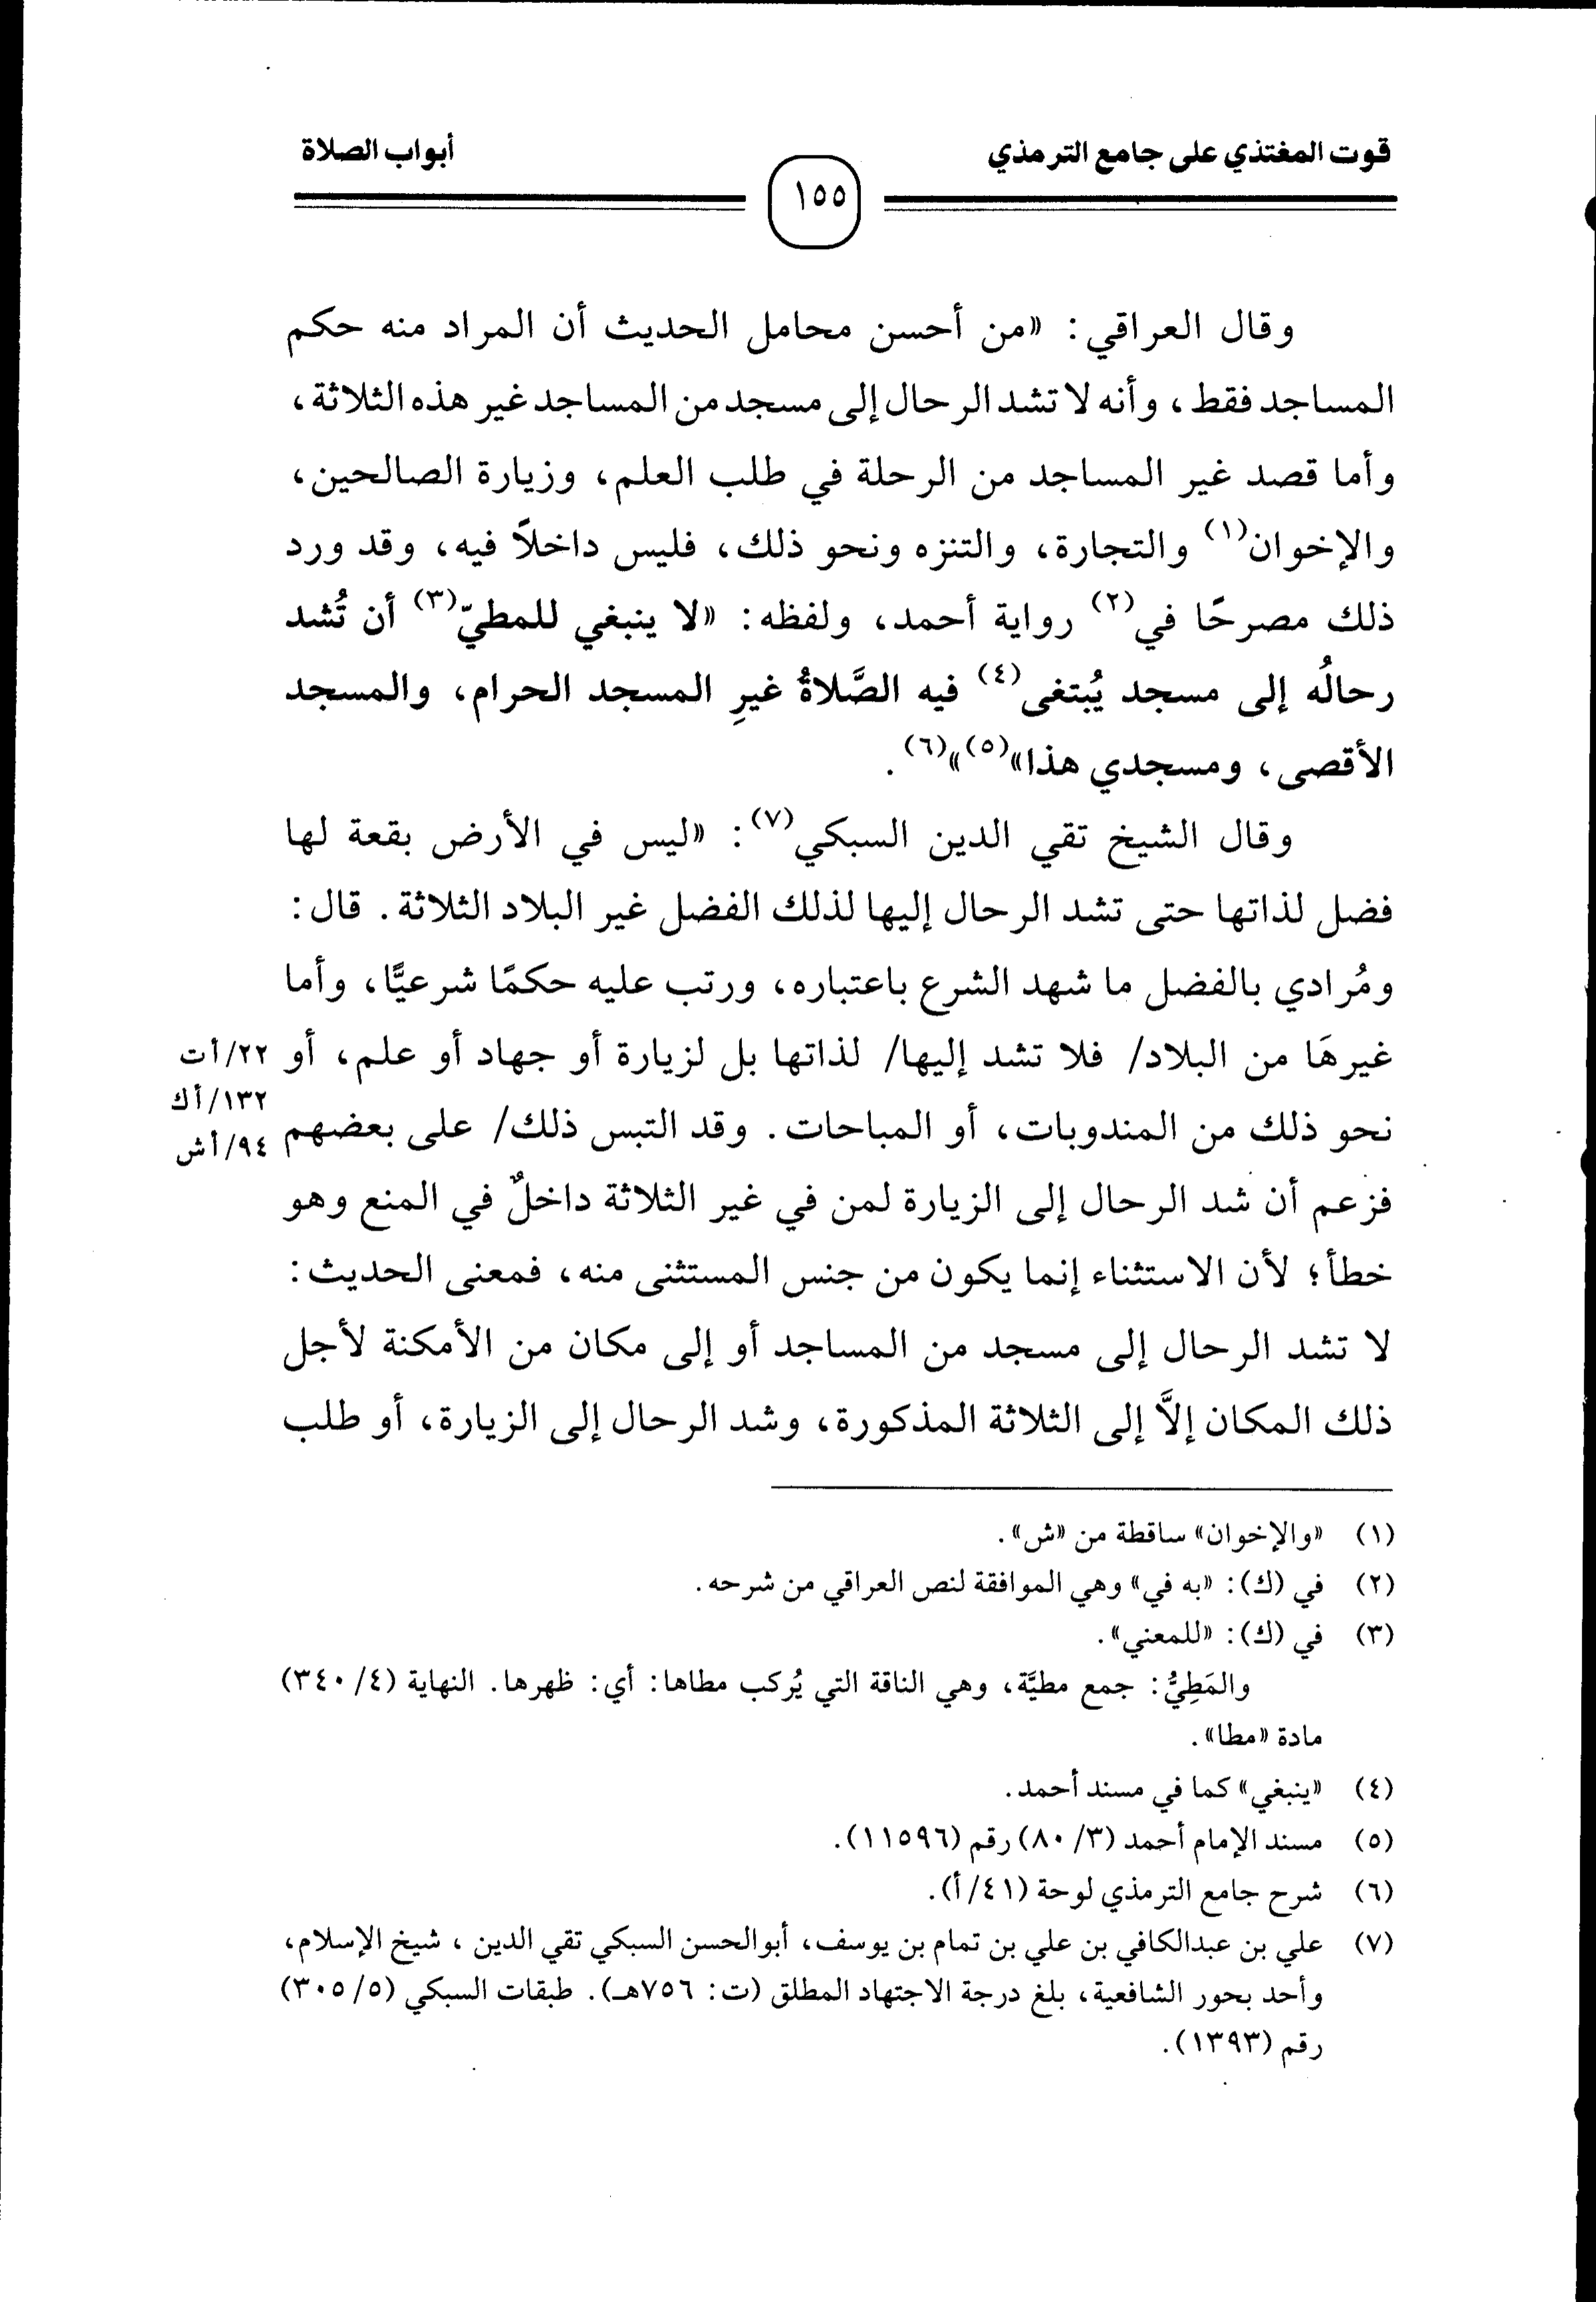 قوت المغتذي على جامع الترمذي
أبواب الصلاة
١٥٥
وقال العراقي: «من أحسن محامل الحديث أن المراد منه حكم
المساجد فقط، وأنه لا تشد الرحال إلى مسجد من المساجد غير هذه الثلاثة،
وأما قصد غير المساجد من الرحلة في طلب العلم، وزيارة الصالحين،
والإخوان(١) والتجارة، والتنزه ونحو ذلك، فليس داخلاً فيه، وقد ورد
ذلك مصرحًا في(٢) رواية أحمد، ولفظه: «لا ينبغي للمطيّ(٣) أن تُشد
رحالُه إلى مسجد يُبتغى(٤) فيه الصَّلاةُ غيرِ المسجد الحرام، والمسجد
الأقصى، ومسجدي هذا»(٥)»(٦).
وقال الشيخ تقي الدين السبكي(٧): «ليس في الأرض بقعة لها
فضل لذاتها حتى تشد الرحال إليها لذلك الفضل غير البلاد الثلاثة. قال:
ومُرادي بالفضل ما شهد الشرع باعتباره، ورتب عليه حكمًا شرعيًّا، وأما
غيرهَا من البلاد/ فلا تشد إليها/ لذاتها بل لزيارة أو جهاد أو علم، أو
٢٢/أت
١٣٢/أك
نحو ذلك من المندوبات، أو المباحات. وقد التبس ذلك/ على بعضهم
٩٤/أش
فزعم أن شد الرحال إلى الزيارة لمن في غير الثلاثة داخلٌ في المنع وهو
خطأ؛ لأن الاستثناء إنما يكون من جنس المستثنى منه، فمعنى الحديث:
لا تشد الرحال إلى مسجد من المساجد أو إلى مكان من الأمكنة لأجل
ذلك المكان إلاَّ إلى الثلاثة المذكورة، وشد الرحال إلى الزيارة، أو طلب
(١) «والإخوان» ساقطة من «ش».
(٢) في (ك): «به في» وهي الموافقة لنص العراقي من شرحه.
(٣) في (ك): «للمعني».
والمَطِيُّ: جمع مطيَّة، وهي الناقة التي يُركب مطاها: أي: ظهرها. النهاية (٤/ ٣٤٠)
مادة «مطا».
(٤) «ينبغي» كما في مسند أحمد.
(٥) مسند الإمام أحمد (٣/ ٨٠) رقم (١١٥٩٦).
(٦) شرح جامع الترمذي لوحة (٤١/أ).
(٧) علي بن عبدالكافي بن علي بن تمام بن يوسف، أبوالحسن السبكي تقي الدين ، شيخ الإسلام،
وأحد بحور الشافعية، بلغ درجة الاجتهاد المطلق (ت: ٧٥٦هـ). طبقات السبكي (٥/ ٣٠٥)
رقم (١٣٩٣).